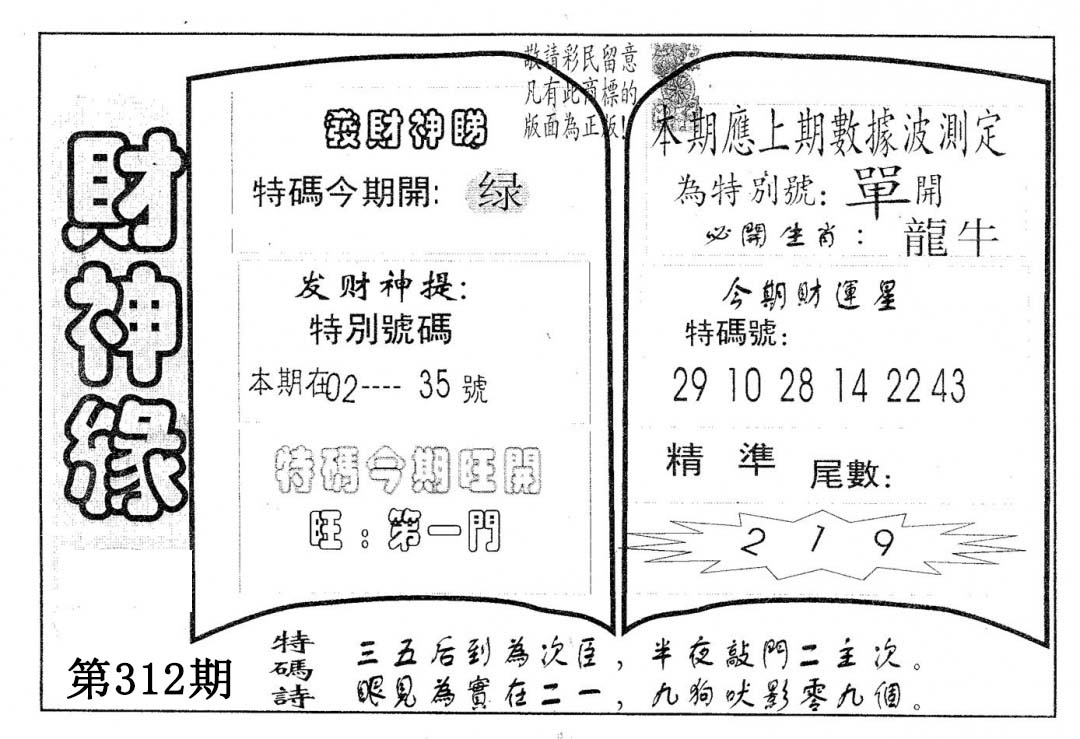 財神緣
敬請彩民留意
凡有此商標的
版面為正版!
發財神睇
特碼今期開: 绿
发财神提:
特別號碼
本期在02---- 35 號
特碼今期旺開
旺:第一門
本期應上期數據波測定
為特別號: 單開
必開生肖: 龍牛
今期財運星
特碼號:
29 10 28 14 22 43
精 準 尾數:
2 1 9
第312期
特碼詩
三五后到為次臣,半夜敲門二主次。
眼見為實在二一,九狗吠影零九個。